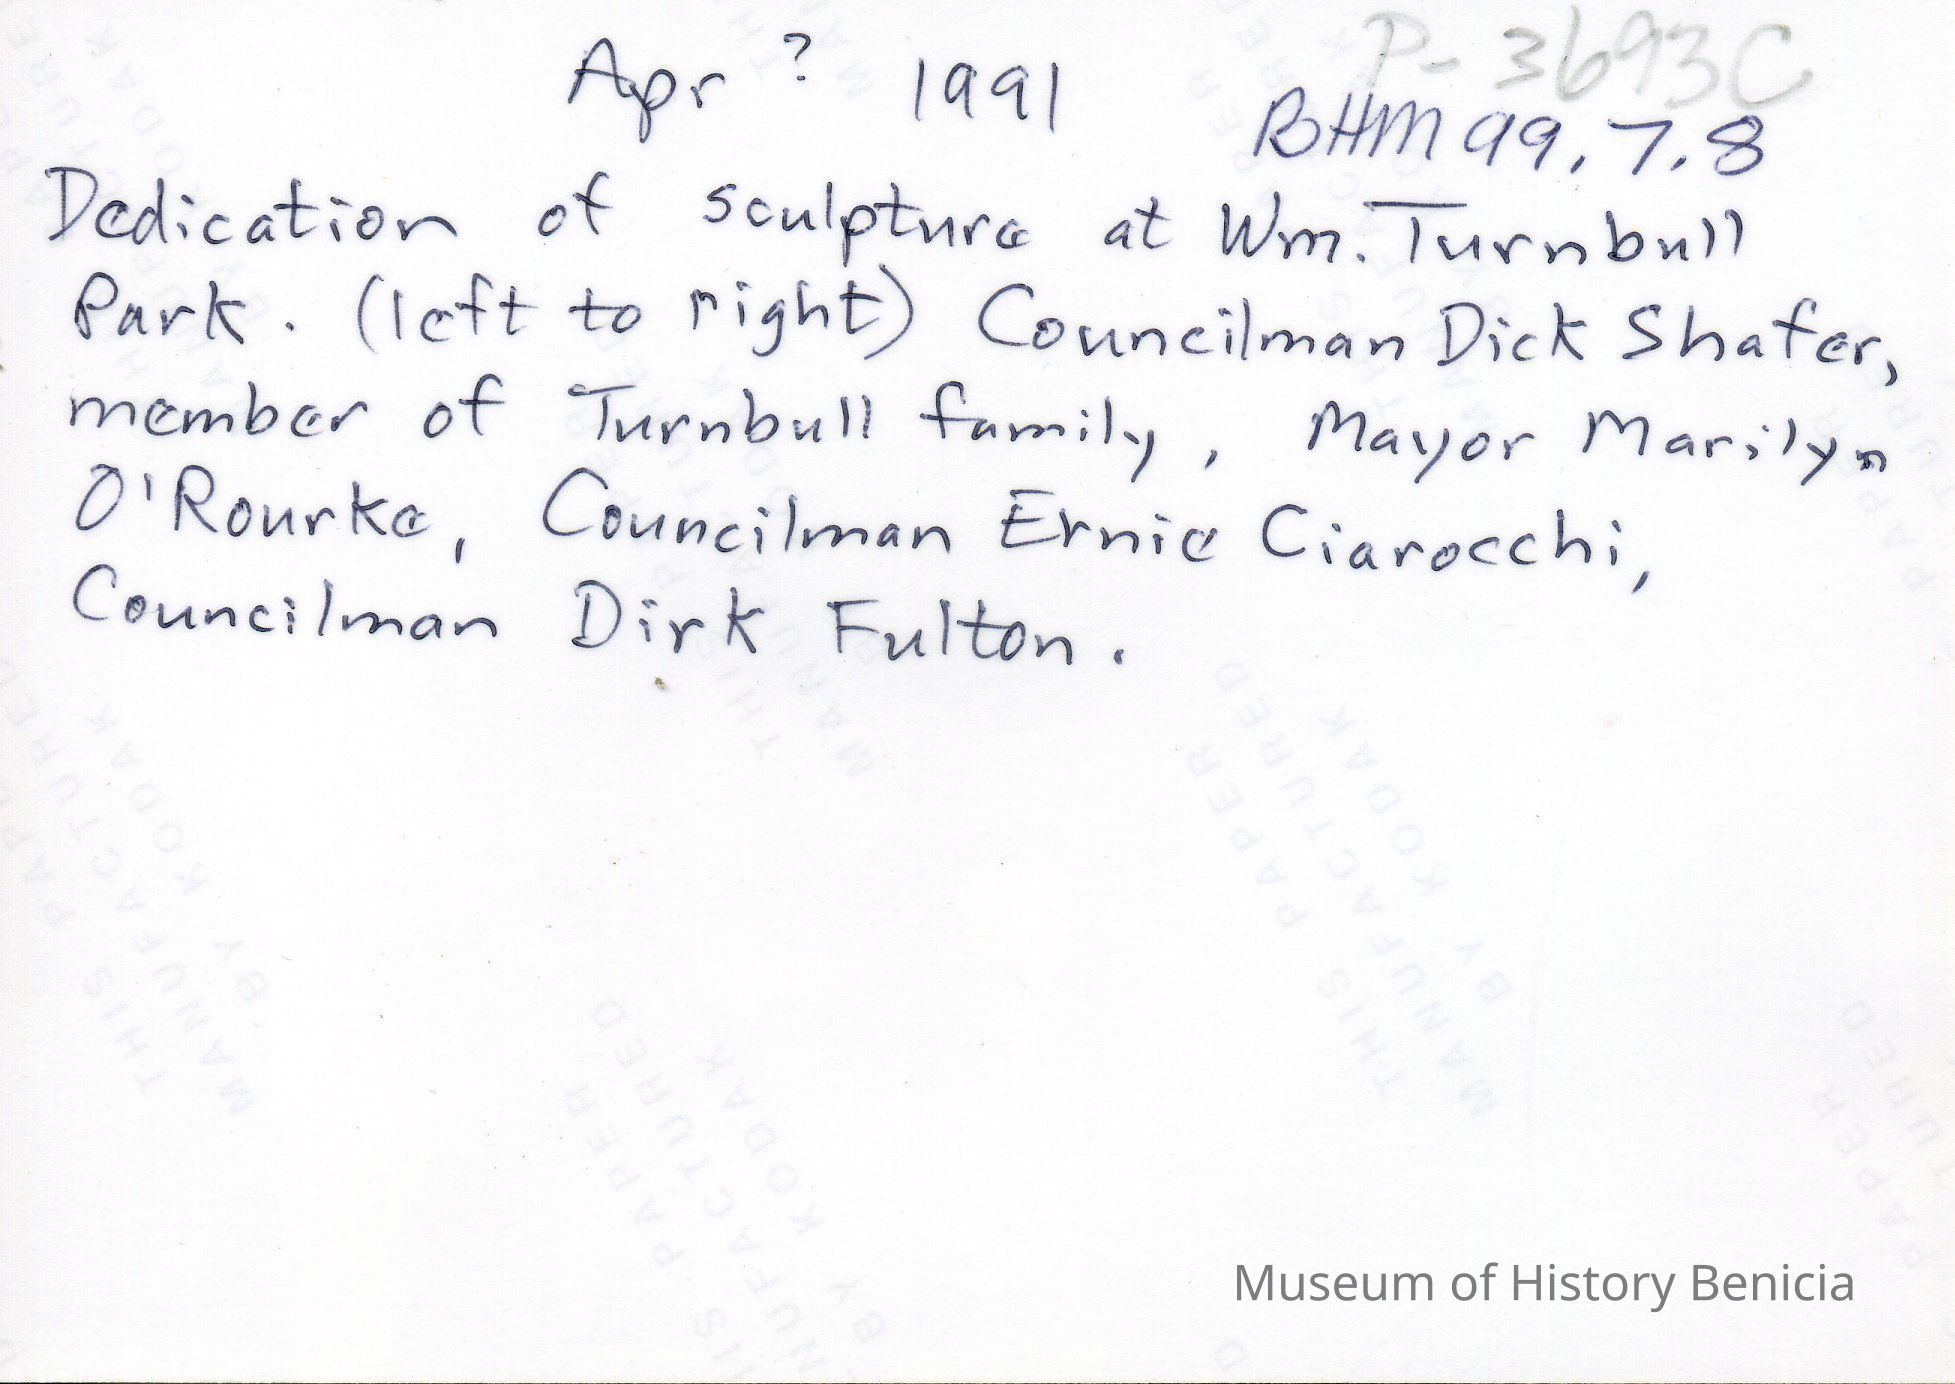 P-3693C
Apr ? 1991
BHM 99.7.8
Dedication of sculpture at Wm. Turnbull
Park. (left to right) Councilman Dick Shafer,
member of Turnbull family, Mayor Marilyn
O'Rourke, Councilman Ernie Ciarocchi,
Councilman Dirk Fulton.
THIS PAPER
MANUFACTURED
BY KODAK
Museum of History Benicia